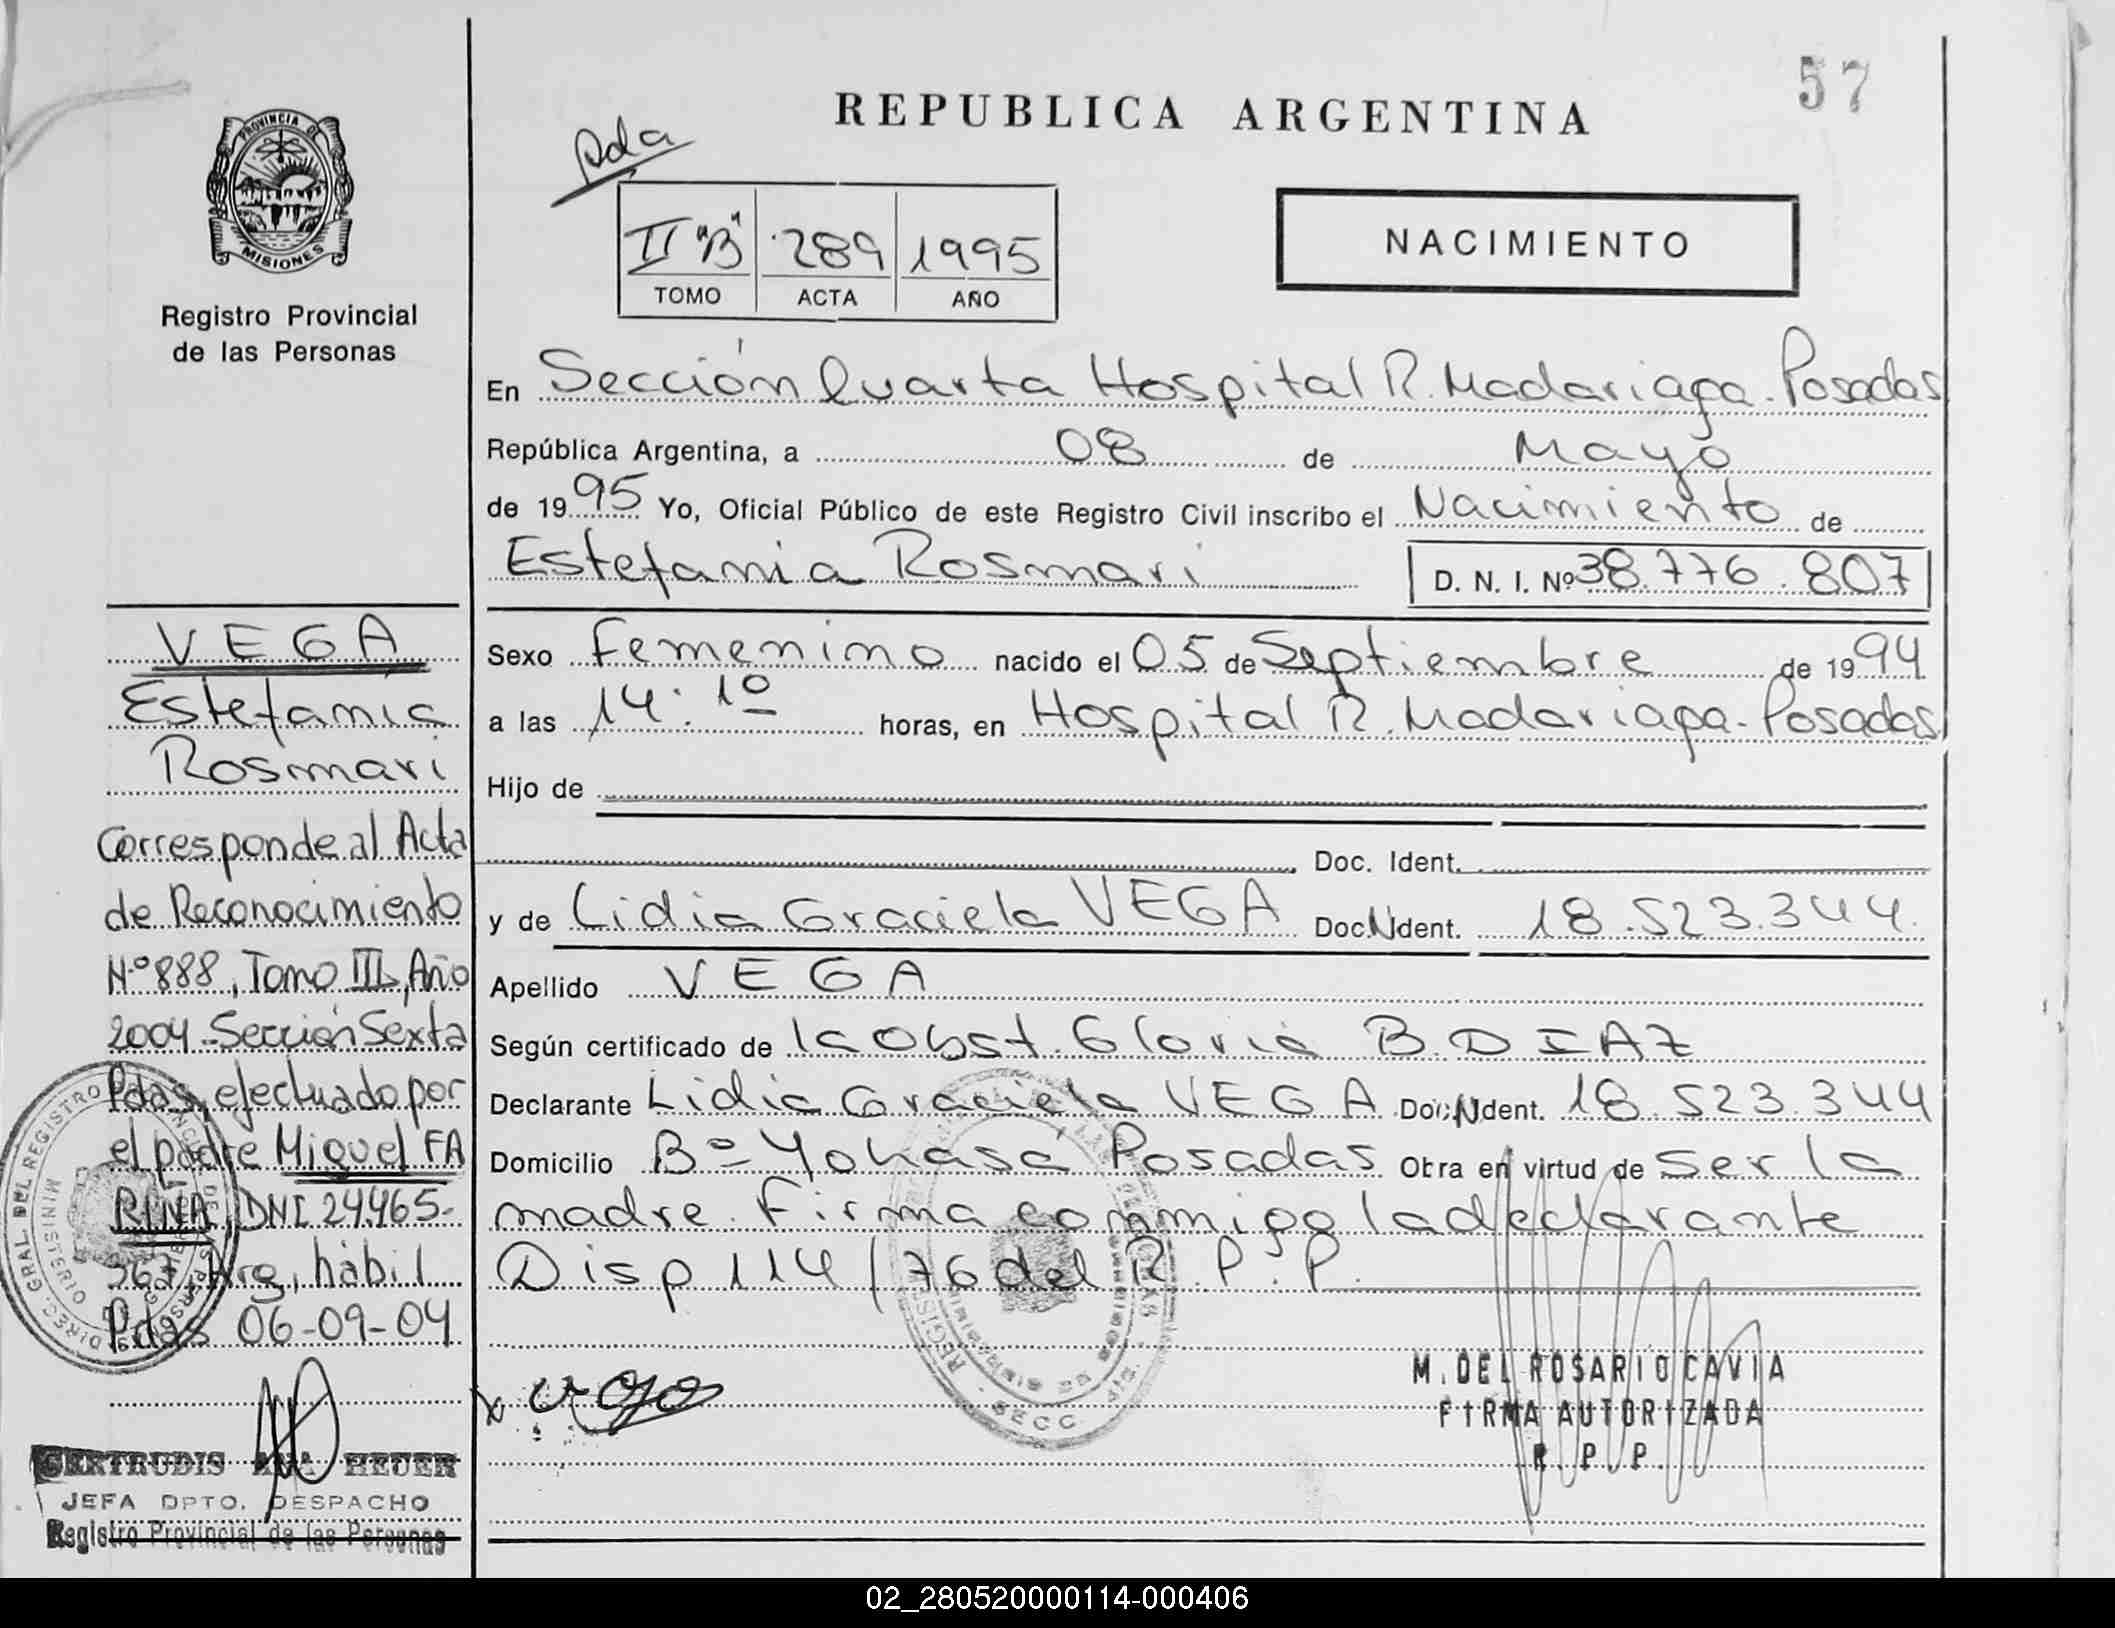 57
REPUBLICA ARGENTINA
Pda
PROVINCIA DE
MISIONES
Registro Provincial
de las Personas
II "B" 289 1995
TOMO ACTA AÑO
NACIMIENTO
En Sección Cuarta Hospital R. Madariaga. Posadas
República Argentina, a 08 de Mayo
de 1995 Yo, Oficial Público de este Registro Civil inscribo el Nacimiento de
Estefania Rosmari D. N. I. Nº 38.776.807
Sexo Femenino nacido el 05 de Septiembre de 1994
a las 14:10 horas, en Hospital R. Madariaga - Posadas
Hijo de
Doc. Ident.
y de Lidia Graciela VEGA Doc. Ident. 18.523.344
Apellido VEGA
Según certificado de la Obst. Gloria B. DIAZ
Declarante Lidia Graciela VEGA Doc. Ident. 18.523.344
Domicilio Bº Yohasá Posadas Obra en virtud de ser la
madre. Firma conmigo la declarante
Disp 114/76 del R.P.P.
M. DEL ROSARIO CAVIA
FIRMA AUTORIZADA
R. P. P.
VEGA
Estefania
Rosmari
Corresponde al Acta
de Reconocimiento
Nº 888, Tomo III, Año
2004 - Sección Sexta
Pdas, efectuado por
el padre Miguel FA
RINA, DNI 24.465.
367, Arg, hábil
Pdas 06-09-04
GERTRUDIS ANA HEUER
JEFA DPTO. DESPACHO
Registro Provincial de las Personas
02_280520000114-000406